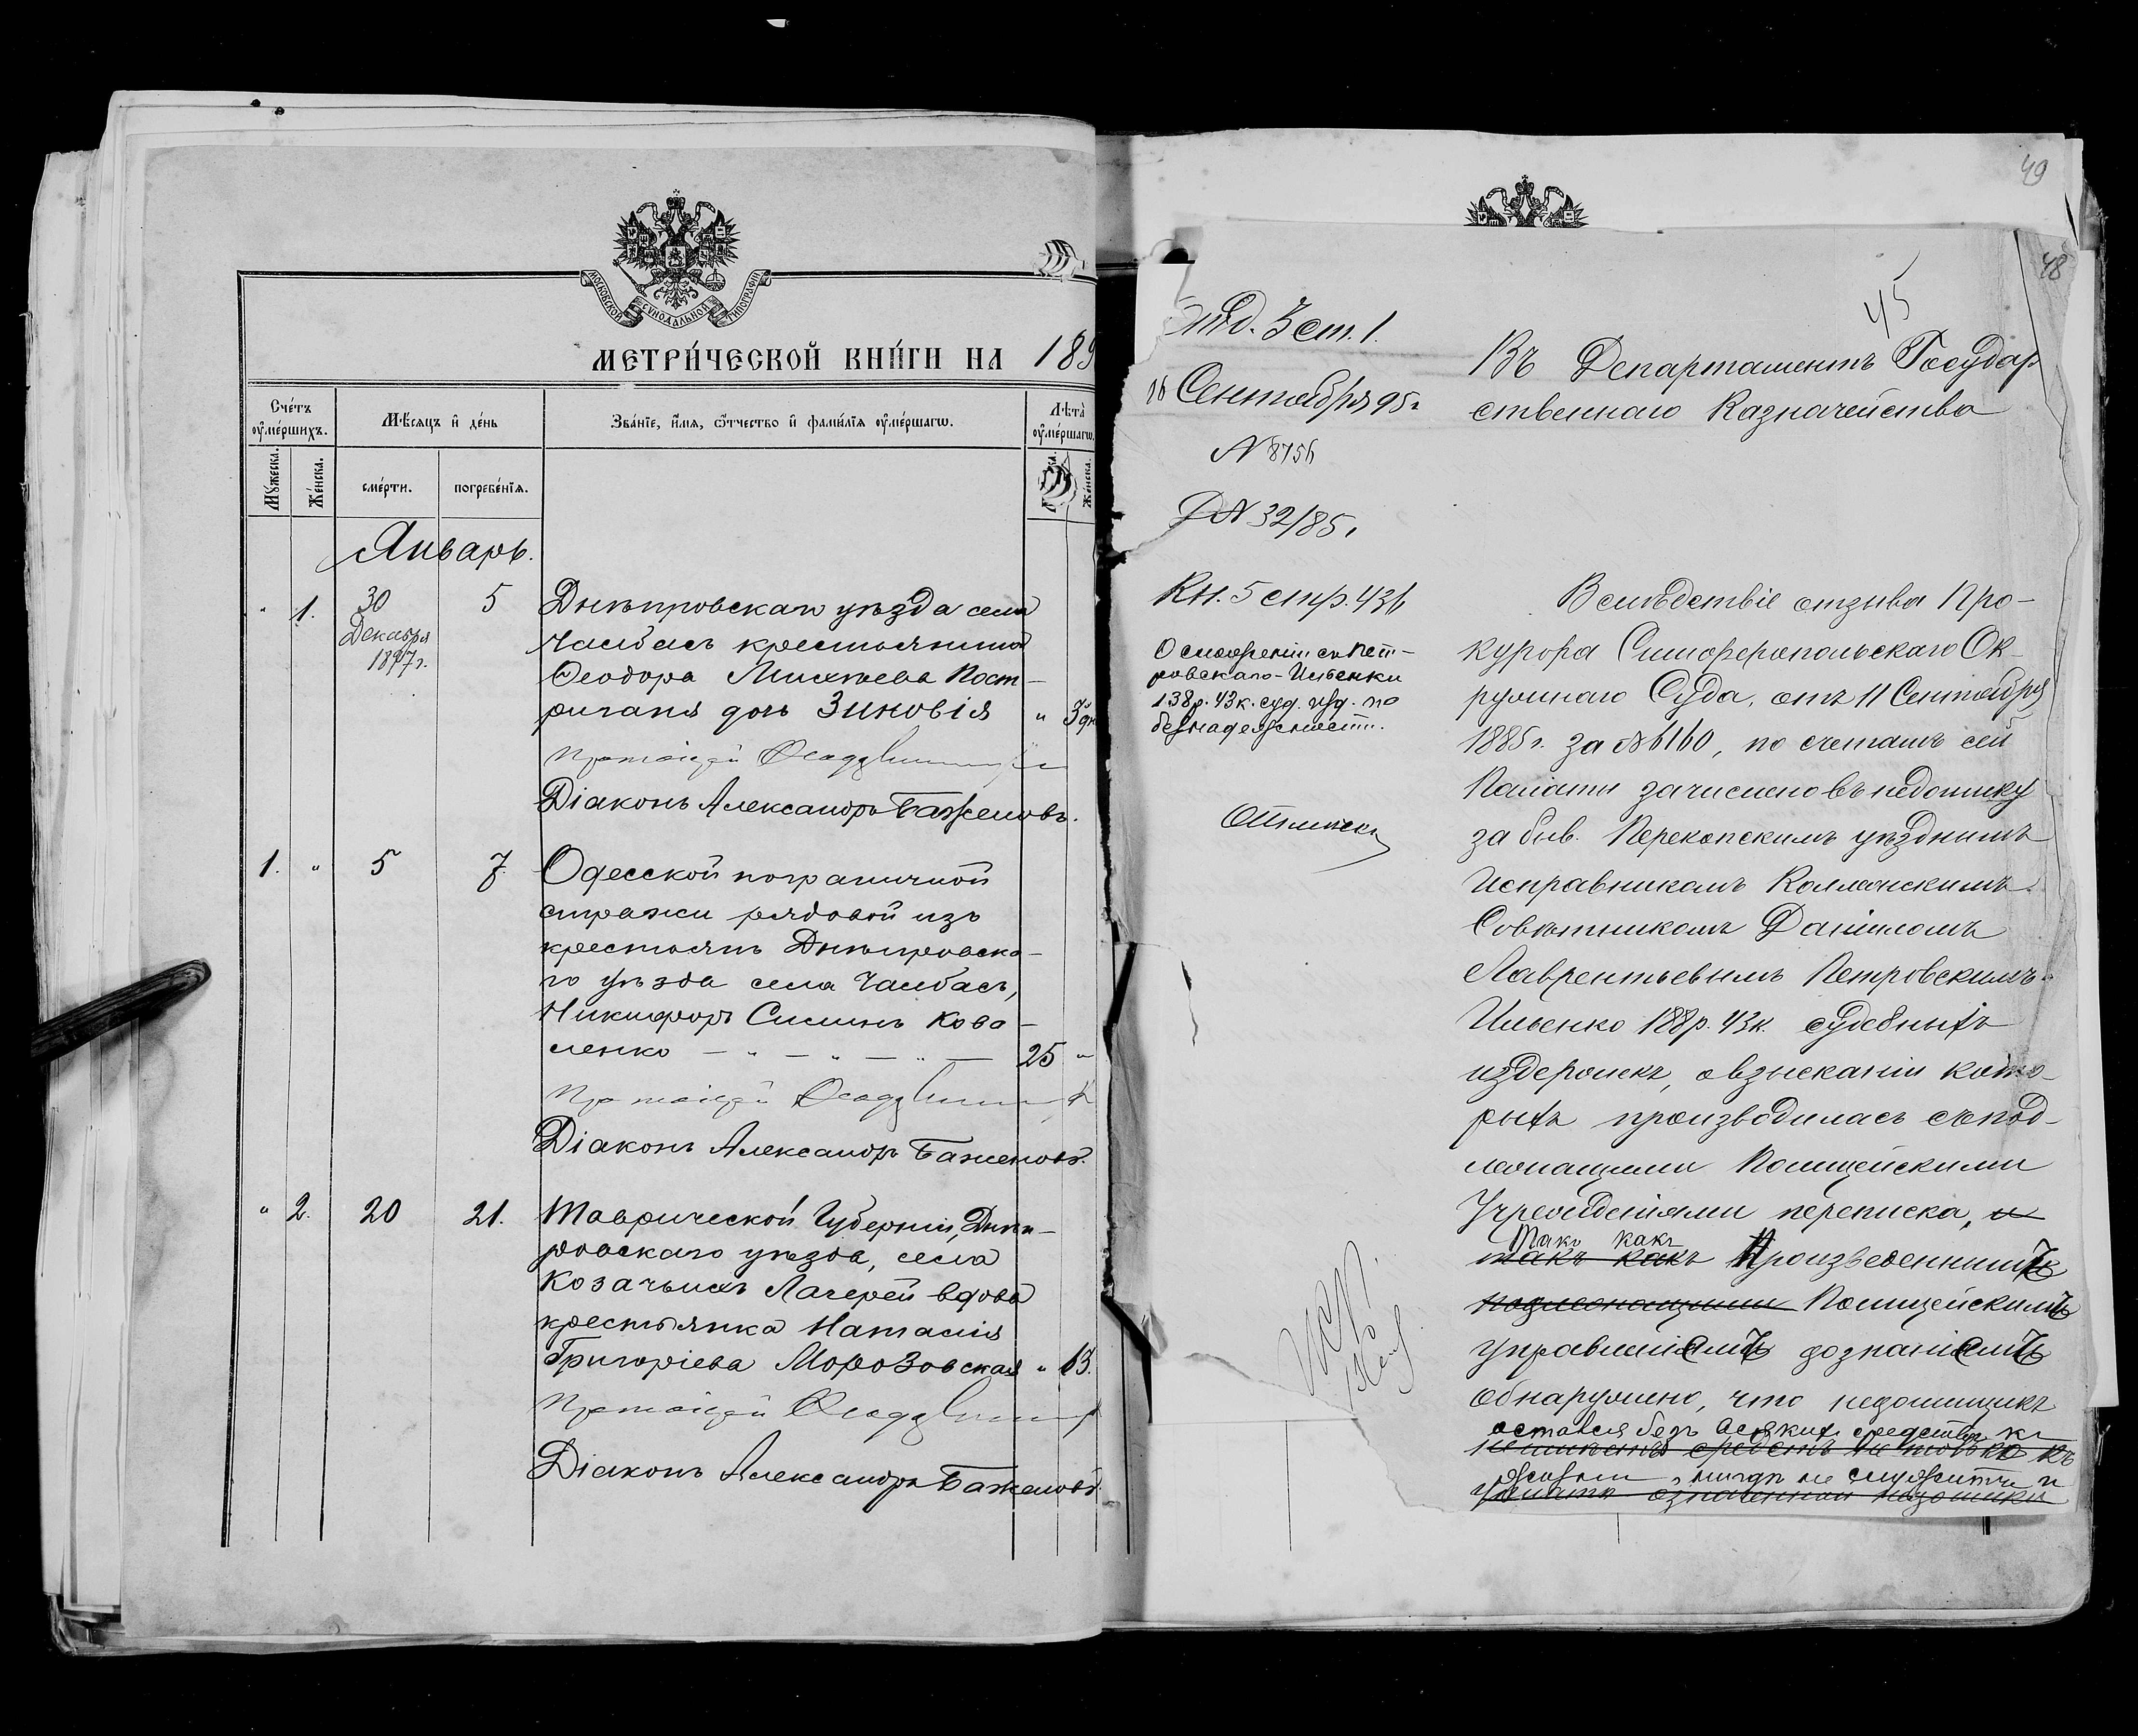 МОСКОВСКОЙ СѴНОДАЛЬНОЙ ТИПОГРАФІИ
МЕТРИ́ЧЕСКОЙ КНИ́ГИ НА 189
Сче́тъ ᲂу҆ме́ршихъ.
Мѣ́сяцъ и҆ де́нь
Зва́нїе, и҆́мя, ѻ҆́тчество и҆ фами́лїя ᲂу҆ме́ршагѡ.
Лѣ́та ᲂу҆ме́ршагѡ.
Мꙋ́жеска.
Же́нска.
сме́рти.
погребе́нїя.
Же́нска.
Январь.
" 1. 30 Декабря 1897г. 5 Днѣпровскаго уѣзда села
Чалбасъ крестьянина
Ѳеодора Михѣева Пост-
ригача дочь Зиновія " 3 дн
Протоіерей
Діаконъ Александръ Баженовъ.
1. " 5 7. Одесской пограничной
стражи рядовой изъ
крестьянъ Днѣпровска-
го уѣзда села Чалбасъ,
Никифоръ Силинъ Кова-
ленко — " — " — " — 25 "
Протоіерей
Діаконъ Александръ Баженовъ.
" 2. 20 21. Таврической Губерніи, Днѣп-
ровскаго уѣзда, села
Козачьихъ Лагерей вдова
крестьянка Наталія
Григоріева Морозовская " 63.
Протоіерей
Діаконъ Александръ Баженовъ.
49
48
45
Отд. 3 ст. 1.
16 Сентября 95г.
N 8756
Д N 32/85г.
Кн. 5 стр. 436
О сложеніи съ Пет-
ровскаго-Ильенки
138р. 43к. суд. изд. по
безнадежности.
Въ Департаментъ Государ
ственнаго Казначейства
Вслѣдствіе отзыва Про-
курора Симферопольскаго Ок-
ружнаго Суда, отъ 11 Сентября
1885г. за № 6160, по счетамъ сей
Палаты зачислено въ недоимку
за быв. Перекопскимъ уѣзднымъ
Исправникомъ Коллежскимъ
Совѣтникомъ Даніиломъ
Лаврентьевымъ Петровскимъ-
Ильенко 188р. 43к. судебныхъ
издержекъ, о взысканіи кото-
рыхъ производилась съ под-
лежащими Полицейскими
Учрежденіями переписка, и
Такъ какъ
такъ какъ Произведеннымъ
подлежащими Полицейскимъ
управленіемъ дознаніемъ
обнаружено, что недоимщикъ
остался безъ всякихъ средствъ къ
не имѣетъ средствъ не только къ
жизни, нигдѣ не служитъ и
уплатѣ означенной недоимки